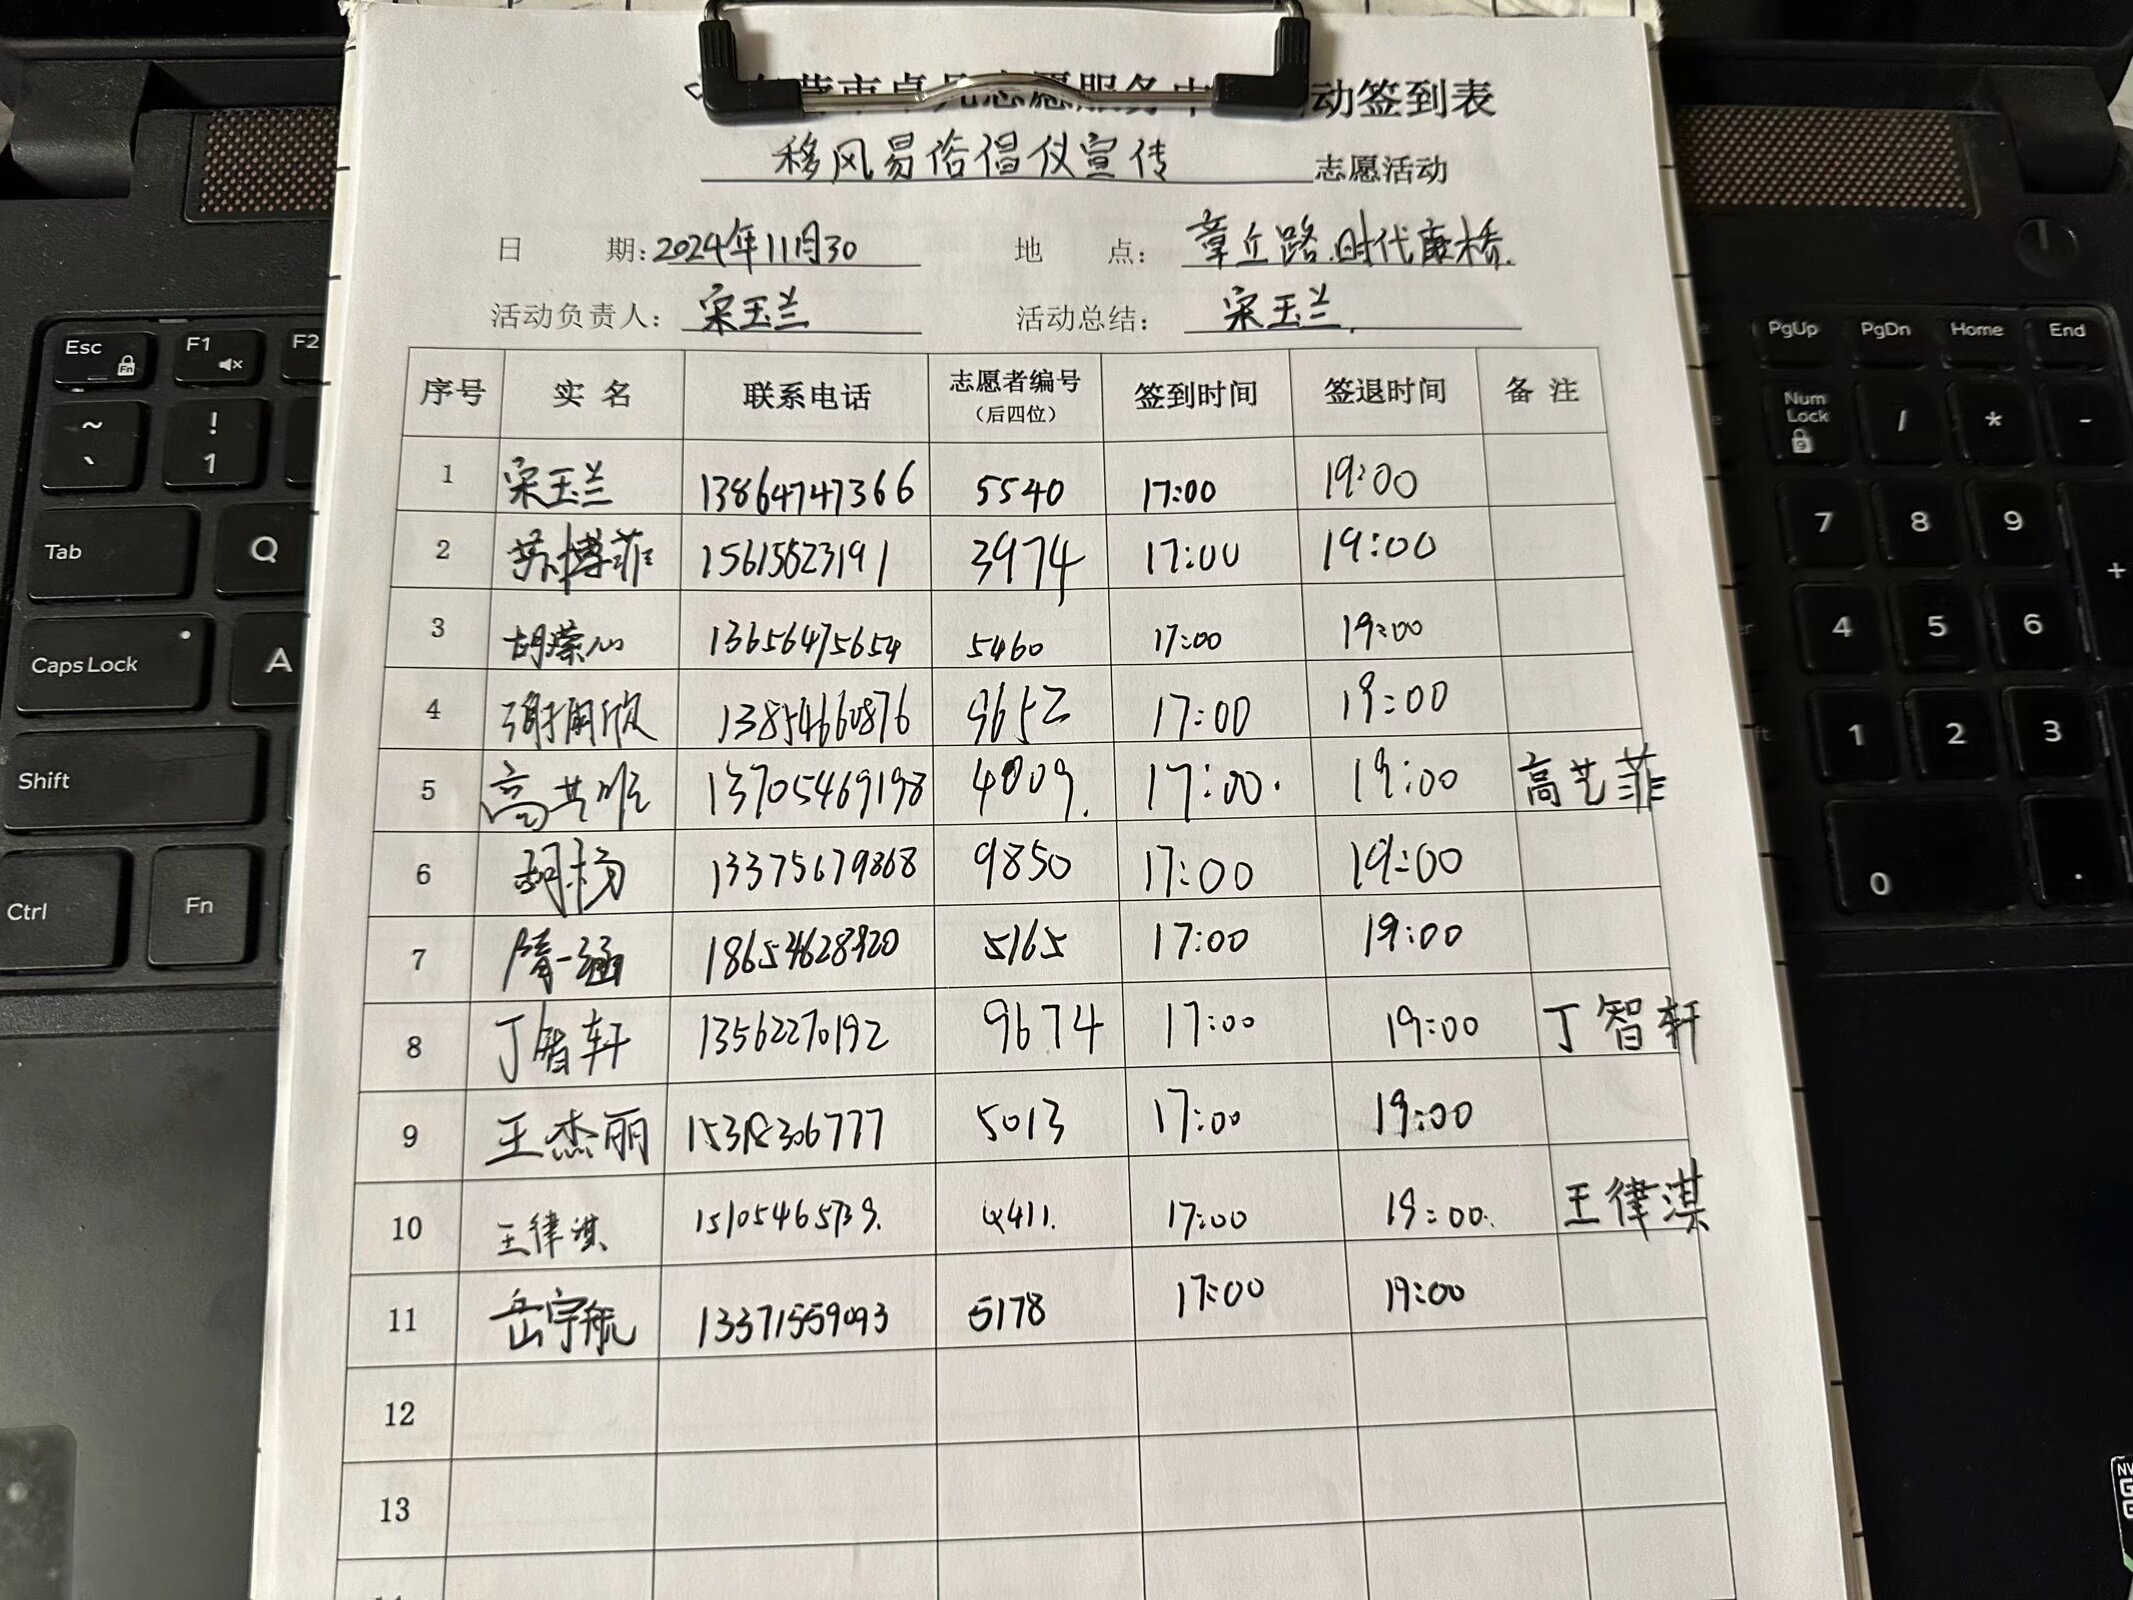 志愿服务中 动签到表
移风易俗倡仪宣传 志愿活动
日 期: 2024年11月30 地 点: 章丘路.时代康桥.
活动负责人: 宋玉兰 活动总结: 宋玉兰.
序号 实 名 联系电话 志愿者编号 (后四位) 签到时间 签退时间 备 注
1 宋玉兰 13864747366 5540 17:00 19:00
2 苏博菲 15615523191 3974 17:00 19:00
3 胡 13656475654 5460 17:00 19:00
4 谢雨欣 13854660876 9652 17:00 19:00
5 高艺菲 13705469198 4009. 17:00. 19:00 高艺菲
6 胡杨 13375679868 9850 17:00 19:00
7 隋一涵 5165 17:00 19:00
8 丁智轩 13562270192 9674 17:00 19:00 丁智轩
9 王杰丽 5013 17:00 19:00
10 王律淇 17:00 19:00. 王律淇
11 岳宇航 13371559093 5178 17:00 19:00
12
13
Esc Fn F1 F2
~ ` ! 1
Tab Q
Caps Lock A
Shift
Ctrl Fn
PgUp PgDn Home End
Num Lock 9 / * -
7 8 9 +
4 5 6
1 2 3
0 .